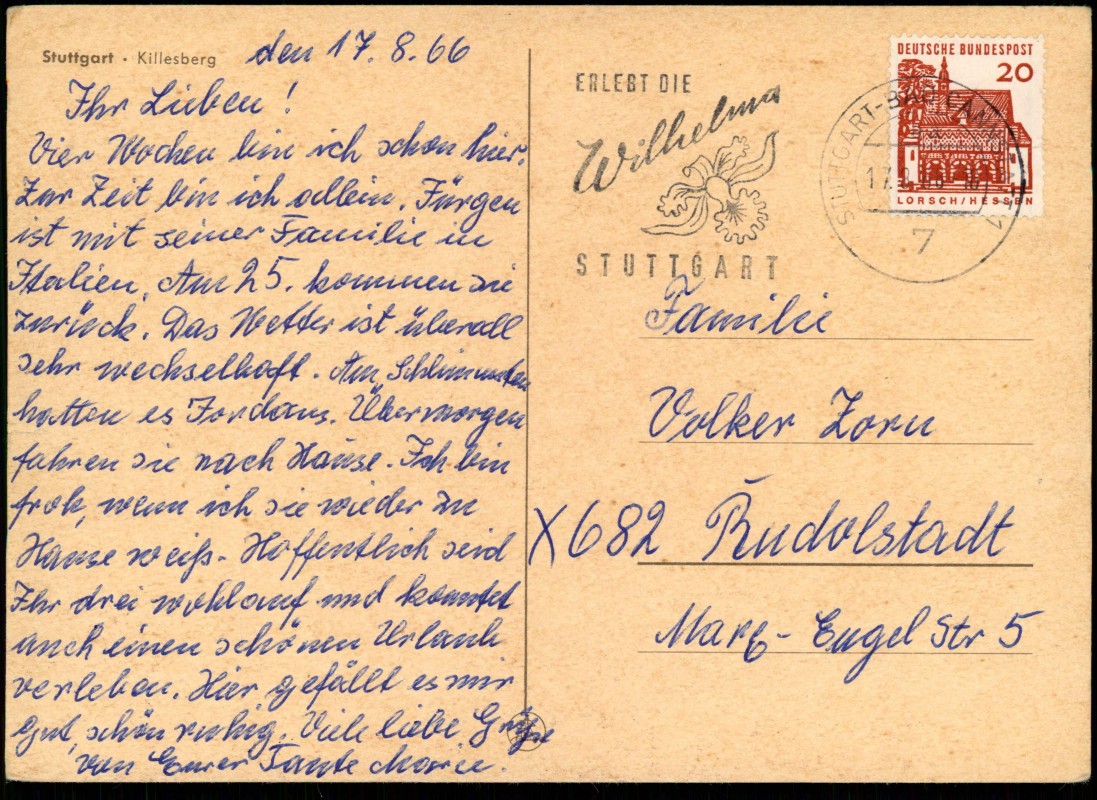 Stuttgart · Killesberg
den 17.8.66
Ihr Lieben!
Vier Wochen bin ich schon hier.
Zur Zeit bin ich allein. Jürgen
ist mit seiner Familie in
Italien. Am 25. kommen sie
zurück. Das Wetter ist überall
sehr wechselhaft. Am Schlimmsten
hatten es Jordans. Übermorgen
fahren sie nach Hause. Ich bin
froh, wenn ich sie wieder zu
Hause weiß. Hoffentlich seid
Ihr drei wohlauf und konntet
auch einen schönen Urlaub
verleben. Hier gefällt es mir
gut, schön ruhig. Viele liebe Grüße
von Eurer Tante Marie.
ERLEBT DIE
Wilhelma
STUTTGART
DEUTSCHE BUNDESPOST
20
LORSCH/HESSEN
STUTTGART-BAD CANNSTATT 1
7
Familie
Volker Zorn
X682 Rudolstadt
Marx-Engel Str 5